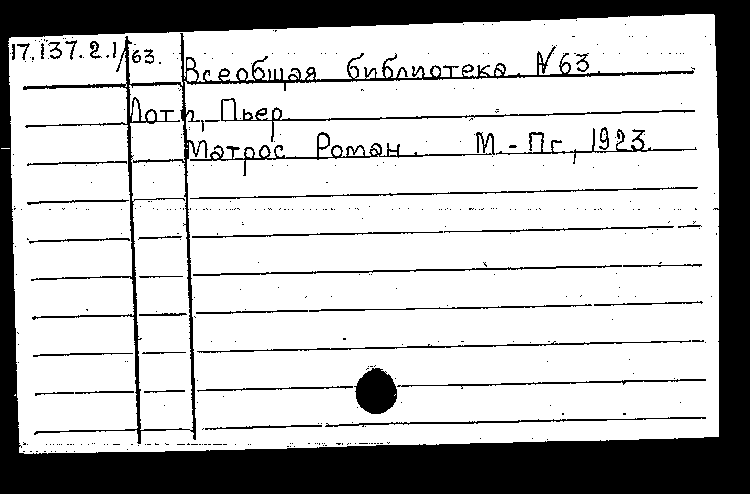 17.137.2.1/63. Всеобщая библиотека. N 63.
Лоти, Пьер.
Матрос Роман. М.-Пг., 1923.